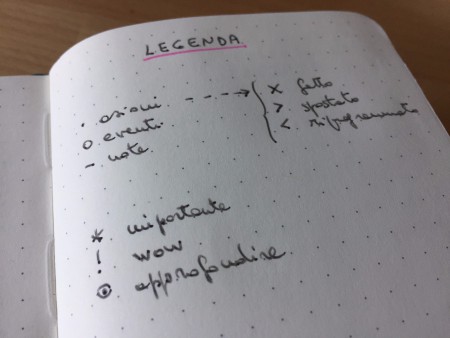 LEGENDA
• azioni ----> { x fatto
o eventi > spostato
- note < riprogrammato
* importante
! wow
⊙ approfondire